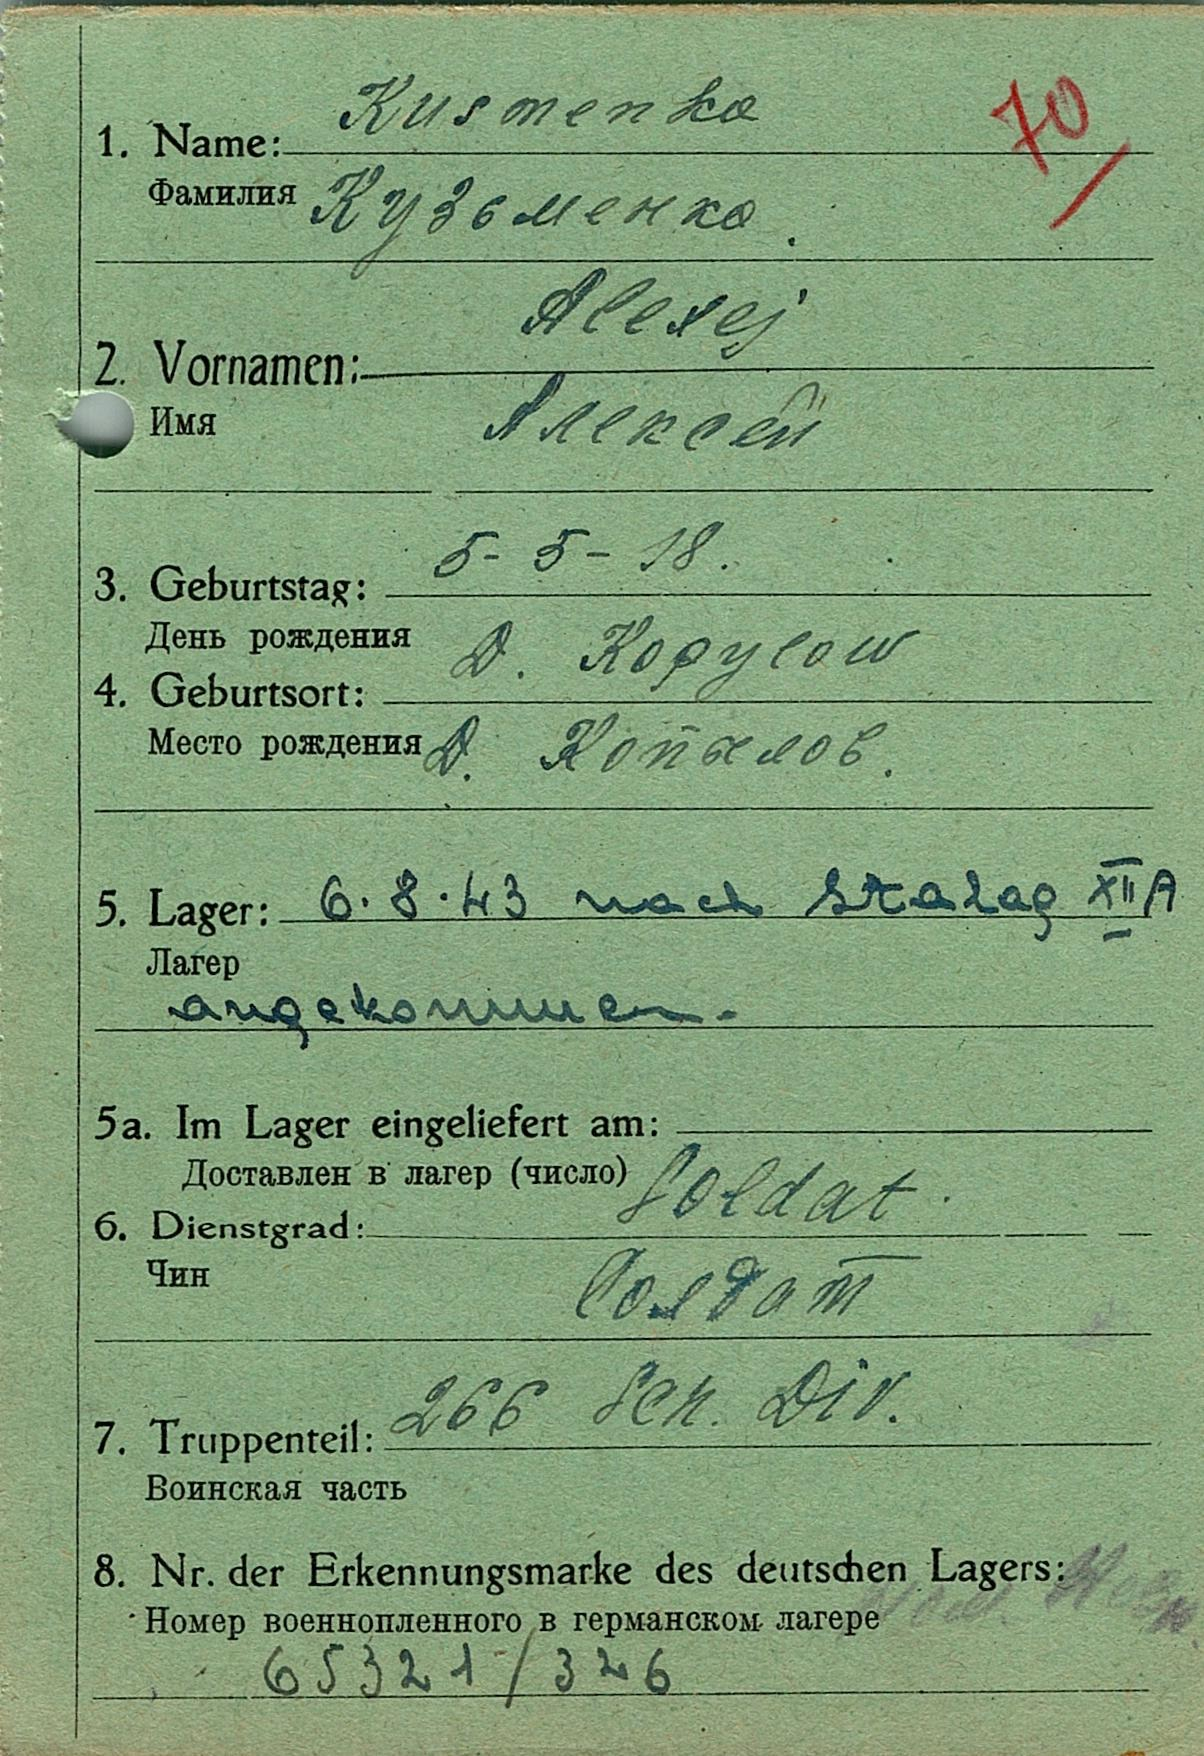 Kusmenko
70/
1. Name:
Фамилия Кузьменко.
Alexej
2. Vornamen:
Имя Алексей
5-5-18.
3. Geburtstag:
День рождения
D. Kopylow
4. Geburtsort:
Место рождения Д. Копылов.
5. Lager: 6.8.43 nach Stalag XII A
Лагер
angekommen.
5a. Im Lager eingeliefert am:
Доставлен в лагер (число)
Soldat.
6. Dienstgrad:
Чин Солдат
266 Sch. Div.
7. Truppenteil:
Воинская часть
8. Nr. der Erkennungsmarke des deutschen Lagers:
Номер военнопленного в германском лагере
65321/326